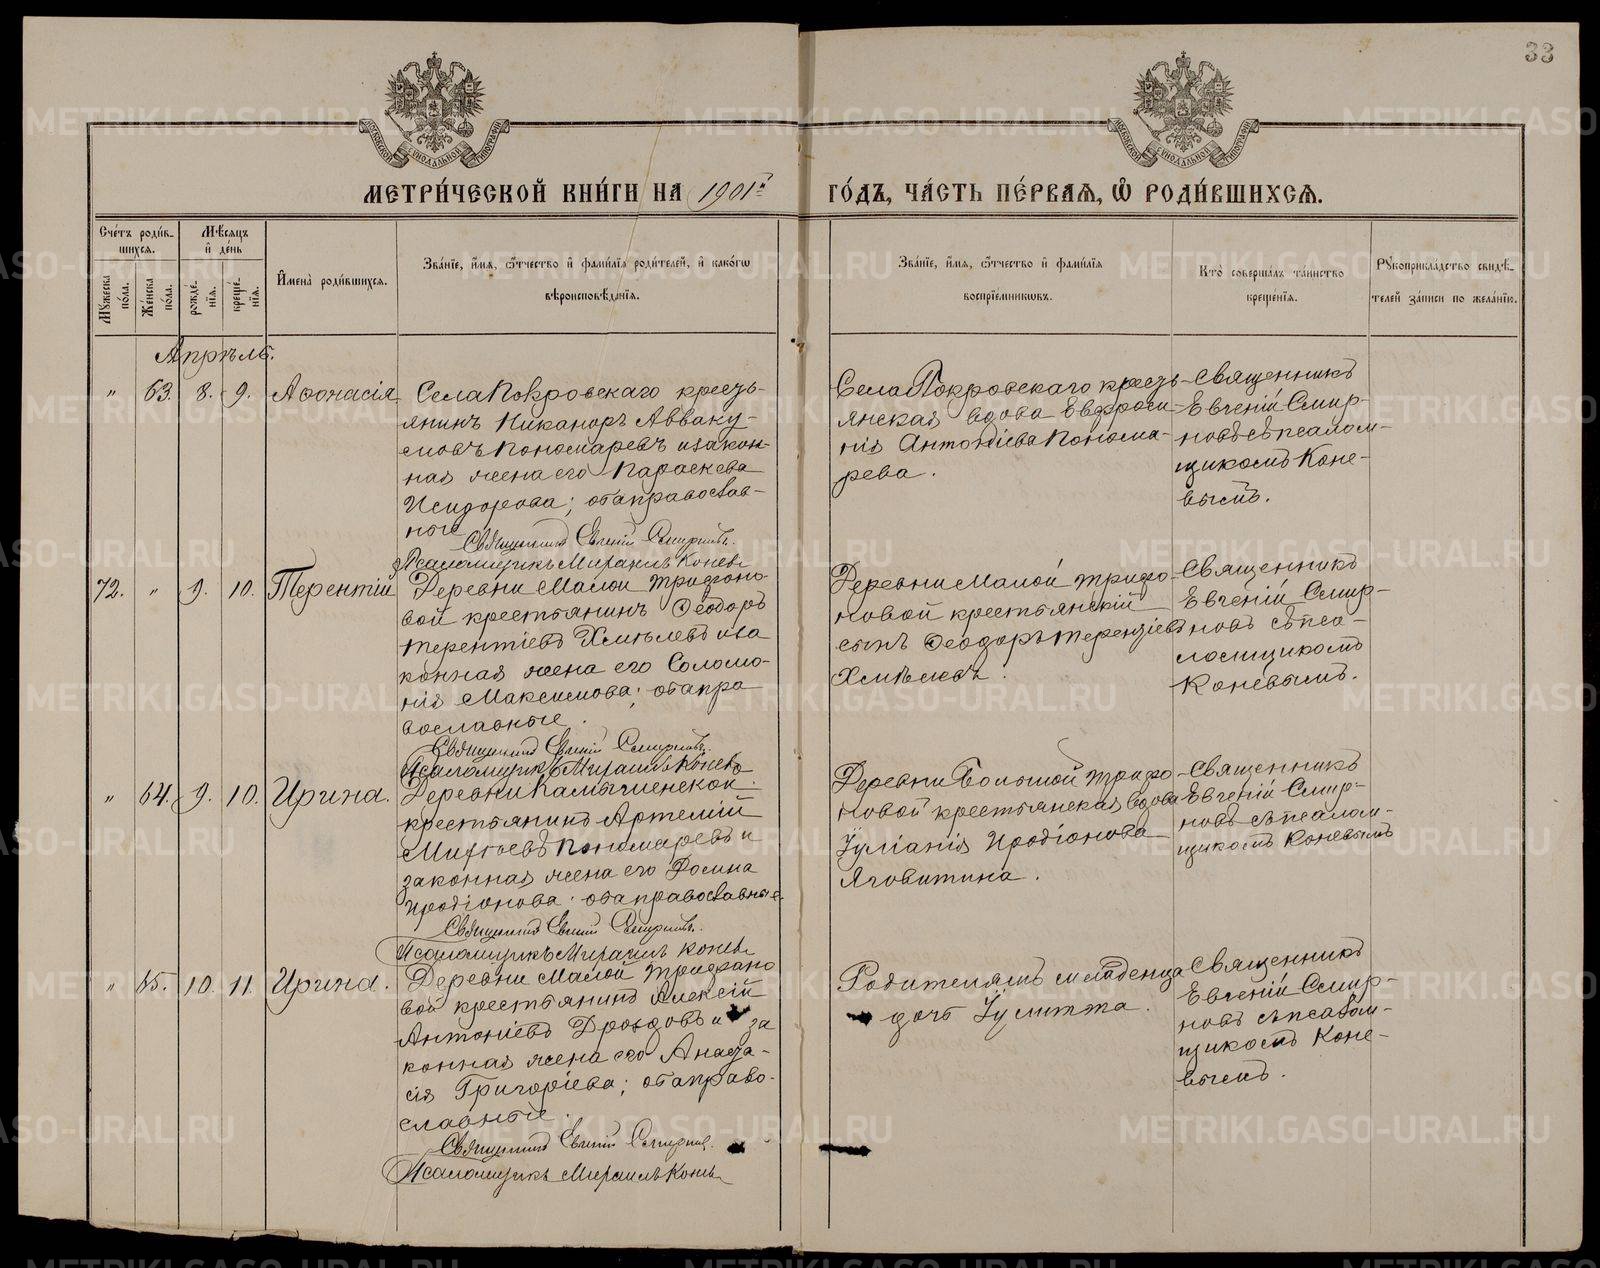 33
МОСКОВСКОЙ СѴНОДАЛЬНОЙ ТИПОГРАФІИ
МОСКОВСКОЙ СѴНОДАЛЬНОЙ ТИПОГРАФІИ
МЕТРИ́ЧЕСКОЙ КНИ́ГИ НА 1901й ГО́ДЪ, ЧА́СТЬ ПЕ́РВАЯ, Ѽ РОДИ́ВШИХСѦ.
Сче́тъ роди́в-
шихся.
Мѣ́сяцъ
и҆ де́нь
Мꙋ́жеска
пола.
Же́нска
по́ла.
рожде́-
нїѧ.
креще́-
нїѧ.
И҆мена̀ роди́вшихся.
Зва́нїе, и҆́мѧ, ѻ҆́тчество и҆ фами́лїѧ роди́телей, и҆ како́гѡ
вѣроисповѣ́данїѧ.
Зва́нїе, и҆́мѧ, ѻ҆́тчество и҆ фами́лїѧ
воспрїе́мникѡвъ.
Кто̀ соверша́лъ та́инство
креще́нїѧ.
Рꙋкоприкла́дство свидѣ́-
телей за́писи по жела́нїю.
Апрѣль.
" 63. 8. 9. Аѳонасія
Села Покровскаго кресть-
янинъ Никаноръ Авваку-
мовъ Пономаревъ и закон-
ная жена его Параскева
Исидорова; оба православ-
ные
Священникъ Евгеній Смирновъ.
Псаломщикъ Михаилъ Коневъ
Села Покровскаго кресть-
янская вдова Евфроси-
нія Антоніева Понома-
рева.
Священникъ
Евгеній Смир-
новъ съ псалом-
щикомъ Коне-
вымъ.
72. " 9. 10. Терентій
Деревни Малой Трифоно-
вой крестьянинъ Ѳеодоръ
Терентіевъ Хмѣлевъ и за
конная жена его Соломо-
нія Максимова; оба пра
вославные.
Священникъ Евгеній Смирновъ.
Псаломщикъ Михаилъ Коневъ
Деревни Малой Трифо-
новой крестьянскій
сынъ Ѳеодоръ Терентіевъ
Хмѣлевъ.
Священникъ
Евгеній Смир-
новъ съ пса-
ломщикомъ
Коневымъ.
" 64. 9. 10. Ирина.
Деревни
крестьянинъ Артемій
Пономаревъ и
законная жена его Фомина
Иродіонова; оба православные.
Священникъ Евгеній Смирновъ.
Псаломщикъ Михаилъ Коневъ
Деревни Большой Трифо-
новой крестьянская вдова
Іуліанія Иродіонова
Яговитина.
Священникъ
Евгеній Смир-
новъ съ псалом-
щикомъ Коневымъ
" 65. 10. 11. Ирина.
Деревни Малой Трифоно
вой крестьянинъ Алексій
Антоніевъ Дроздовъ и за
конная жена его Анаста-
сія Григоріева; оба право-
славные.
Священникъ Евгеній Смирновъ.
Псаломщикъ Михаилъ Коневъ
Родителямъ младенца
дочь Іулитта.
Священникъ
Евгеній Смир-
новъ съ псалом-
щикомъ Коне-
вымъ.
METRIKI.GASO-URAL.RU